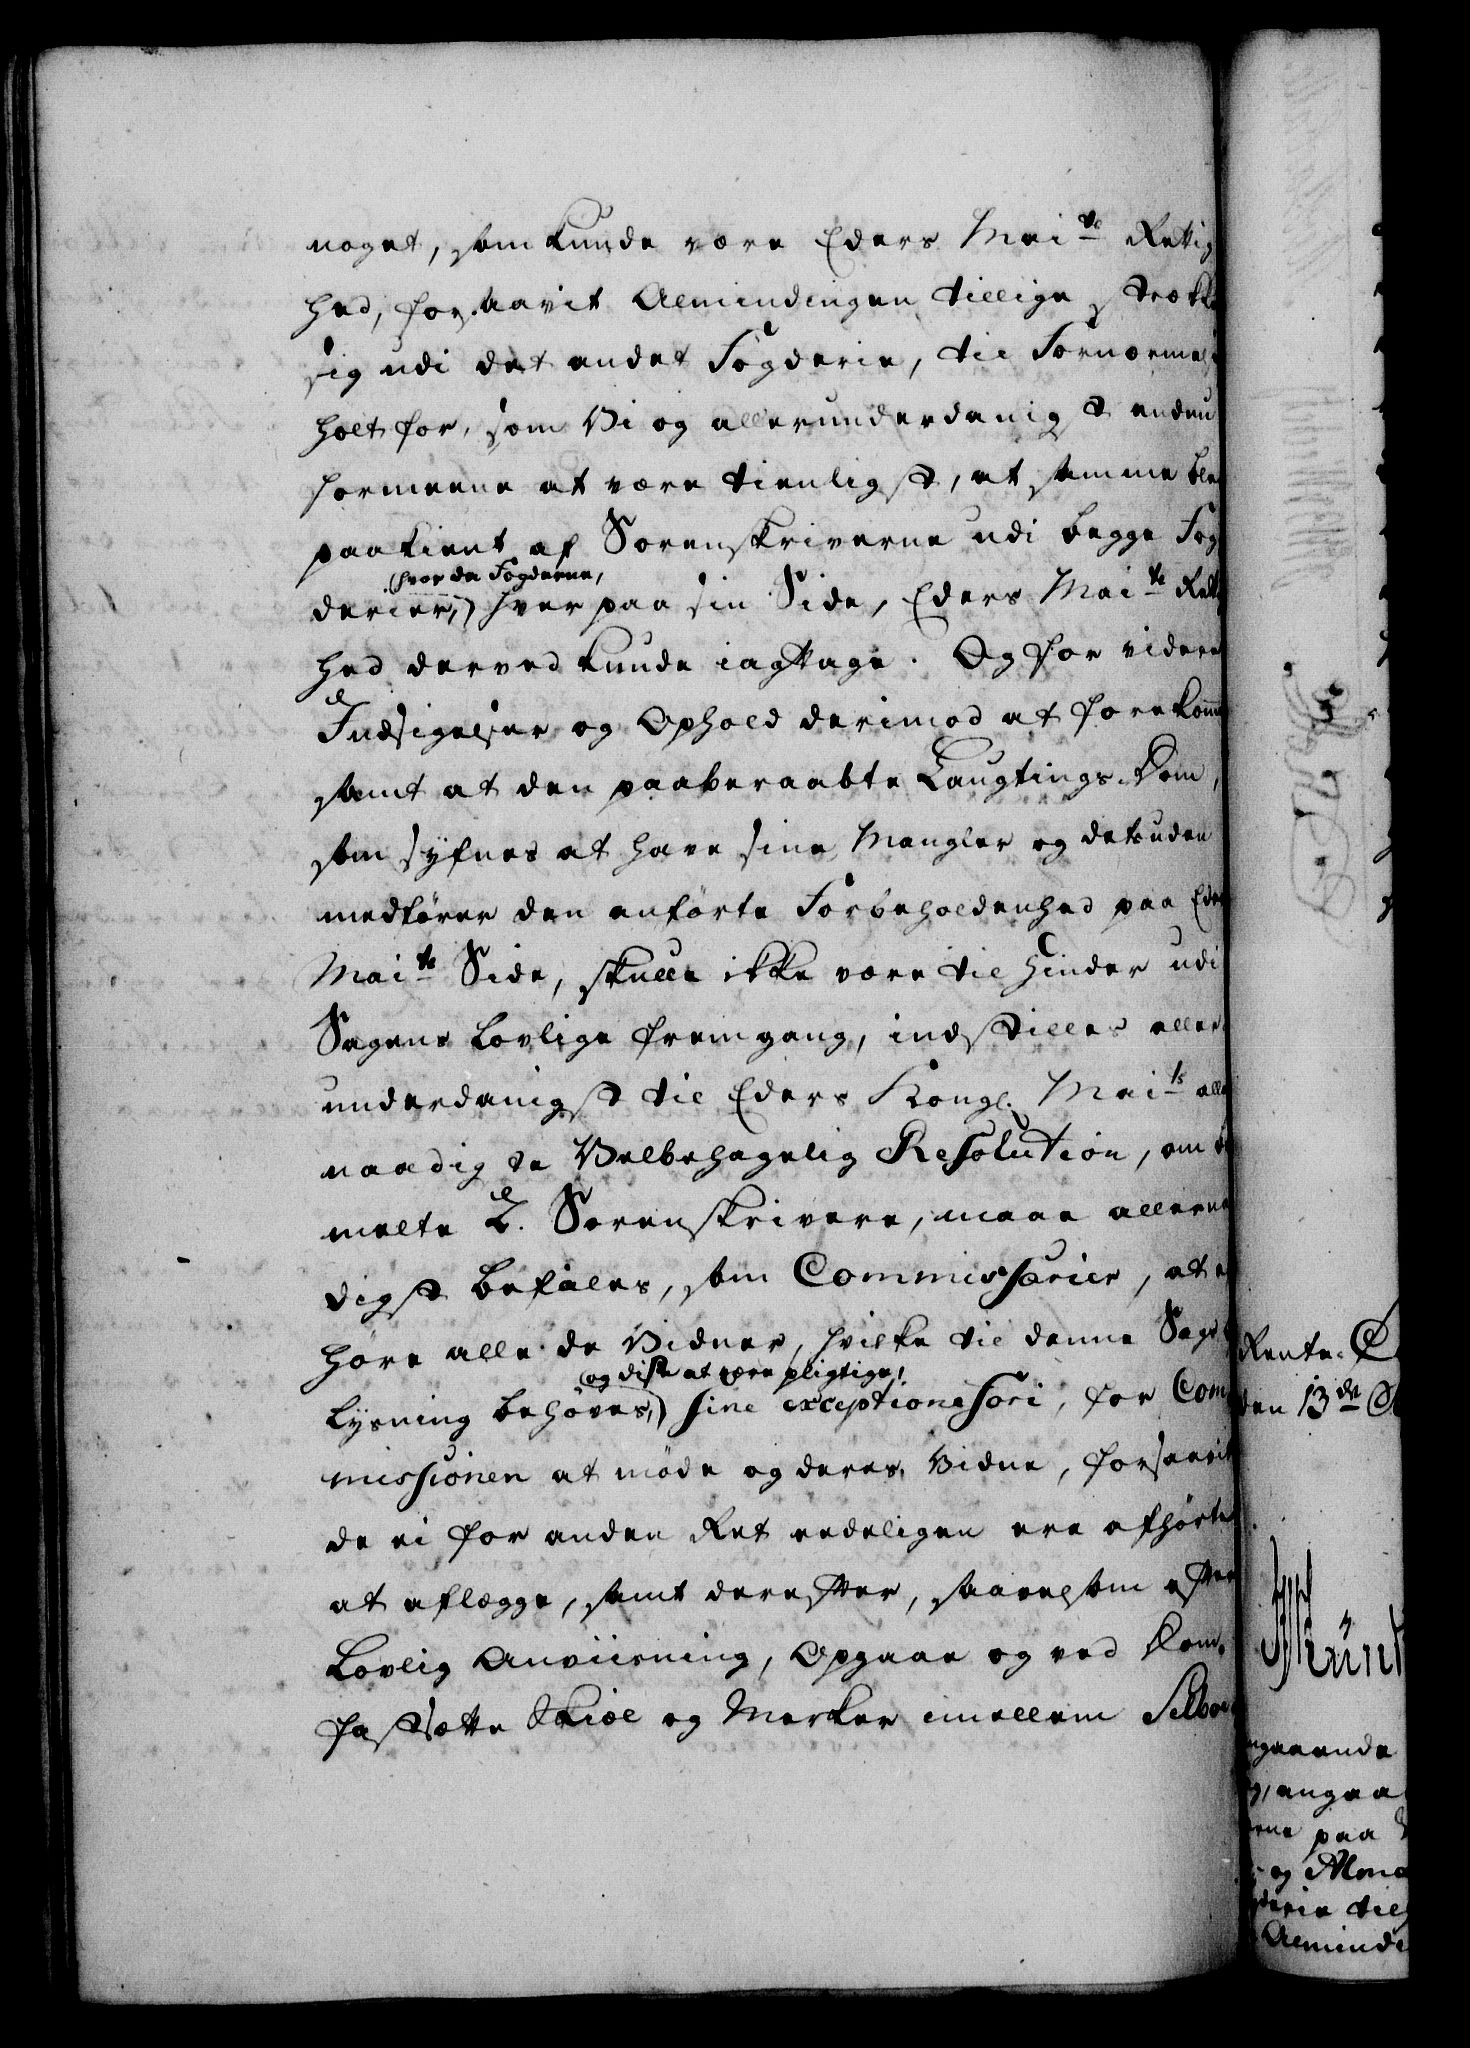 noget, som kunde være Eders Mai:ts Rettig
hed, forsaavit Almindingen tillige strækk
sig udi det andet Fogderie, til Fornærmels
holt for, som Vi og allerunderdanigst endnu
formeene at være tienligst, at samme blev
paakient af Sorenskriverne udi begge Fog
(hvor da Fogderne,
derier,) hver paa sin Side, Eders Mai:ts Rett
hed derved kunde iagttage. Og for videre
Indsigelser og Ophold derimod at forekomme
samt at den paaberaabte Laugtings-Dom,
som syfnes at have sine Mangler og desuden
medfører den anførte Forbeholdenhed paa Eders
Mai:ts Side, skulle ikke være til Hinder udi
Sagens Lovlige fremgang, indstilles aller-
underdanigst til Eders Kongl. Mai:ts aller
naadigste Velbehagelig Resolution, om be
melte 2. Sorenskrivere, maae allernaa
digst befales, som Commissarier, at
høre alle de Vidner, hvilke til denne Sags
(og disse at være pligtige,
Lysning behøves,) sine exceptione fori, for Com
missionen at møde og deres Vidne, forsaavit
de ei for anden Ret eedeligen ere afhørte
at aflægge, samt derefter, saavelsom efter
Lovlig Anviisning, Opgaae og ved Dom
fastsætte Skiæl og Merker imellem Selboe
Rente-C
den 13de
ngaaende
angaa
erne paa
og Alm
derie til
Alminde